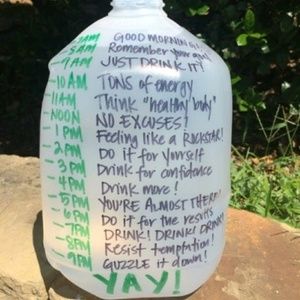 7AM GOOD MORNING!
8AM Remember your goal
9AM JUST DRINK IT!
10AM TONS of energy
11AM Think "healthy body"
NOON NO EXCUSES!
1 PM Feeling like a ROCKSTAR!
2PM Do it for yourself
3PM Drink for confidence
4PM Drink more!
5PM YOU'RE ALMOST THERE!
6PM Do it for the results
7PM DRINK! DRINK! DRINK!
8PM Resist temptation!
9PM GUZZLE it down!
YAY!